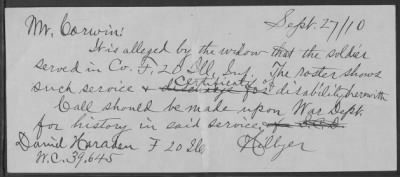 Sept. 27/10
Mr. Corwin:
It is alleged by the widow that the soldier
served in Co. F, 20 Ill. Inf. The roster shows
such service & Certificate of disability herewith
Call should be made upon War Dept.
for history in said service
Hillyer
David Haraden F 20 Ill
W.C. 39,645